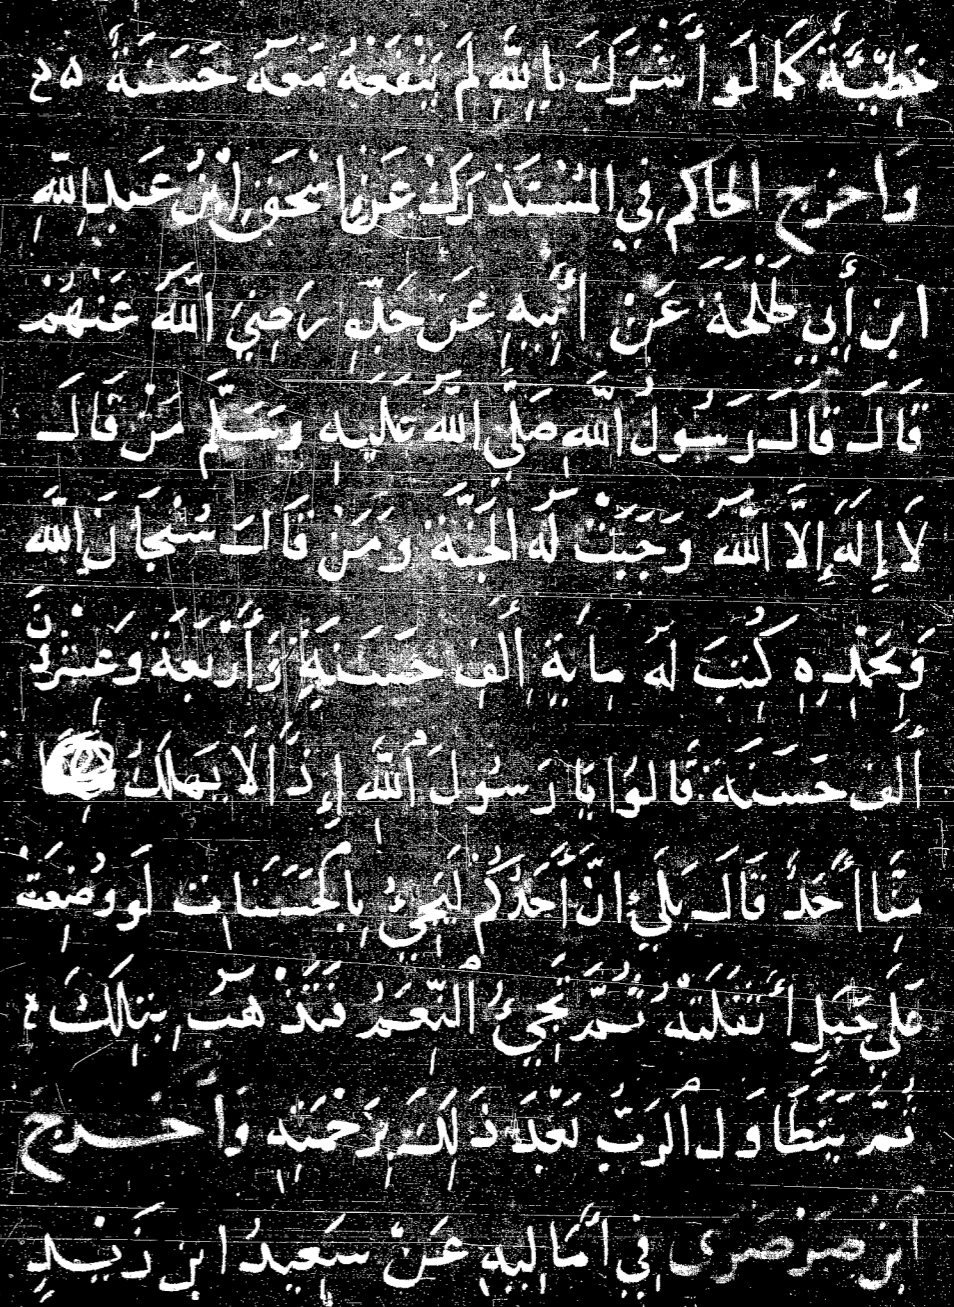 خَطِيَّةٌ كَمَا لَوْ أَشْرَكَ بِاللَّهِ لَمْ يَنْفَعْهُ مَعَهُ حَسَنَةٌ
وَأَخرَجَ الحَاكِم فِي المُسْتَدْرَكْ عَنْ اِسْحَقِ اِبْنُ عَبدِ اللَّهِ
ابن أَبِي طَلْحَةَ عَنْ أَبِيهِ عَن جَدِّهِ رَضِيَ اللَّهُ عَنْهُمْ
قَالَ قَالَ رَسُولُ اللَّهِ صَلَّى اللَّهُ عَلَيهِ وَسَلَّم مَنْ قَالَ
لَا إِلَهَ إِلَّا اللَّهُ وَجَبَتْ لَهُ الجَنَّة وَمَنْ قَالَ سُبْحَانَ اللَّه
وَبِحَمْدِهِ كُتِبَ لَهُ مِايَةِ أَلفِ حَسَنَةٍ وَأَرْبَعَة وَعِشْرُونَ
أَلفَ حَسَنَة قَالُوا يَا رَسُولَ اللَّهِ إِذًا لَا يَهلَكُ
مِنَّا أَحَدٌ قَالَ بَلَى إِنَّ أَحَدَكُمْ لَيَجِئُ بِالحَسَنَاتِ لَو وُضِعَتْ
عَلَى جَبَلٍ أَثْقَلَتهُ ثُمَّ تَجِئُ النِّعَمُ فَتَذْهَبُ بِتِلكَ
ثُمَّ يَتَطَاوَل الرَبُّ بَعْدَ ذَلِكَ بِرَحْمَتِهِ وَأَخرَج
ابن صَرْصَرى فِي أَمَالِيهِ عَنْ سَعِيدُ ابن زَيدٍ